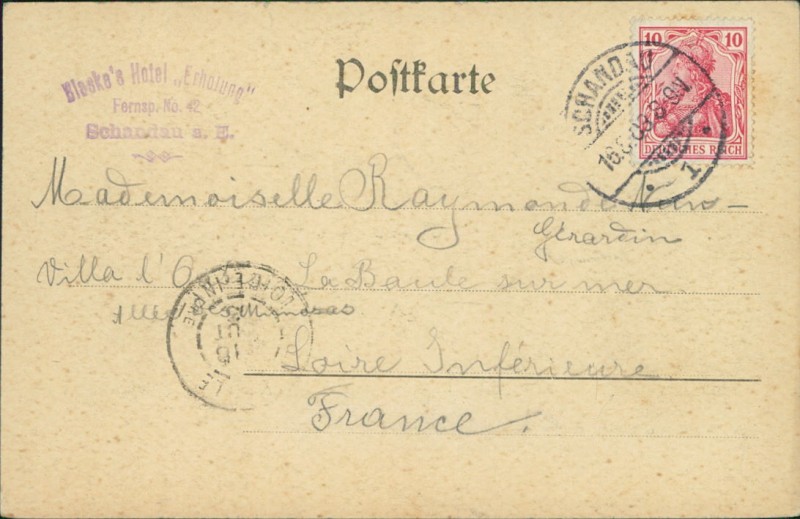 Bleske's Hotel „Erholung"
Fernsp. No. 42
Schandau a. E.
Postkarte
10 10
DEUTSCHES REICH
SCHANDAU
1
Mademoiselle Raymonde
Gérardin
Villa l'O La Baule sur mer
Allée des Mimosas
Loire Inférieure
France.
LOIRE INFRE